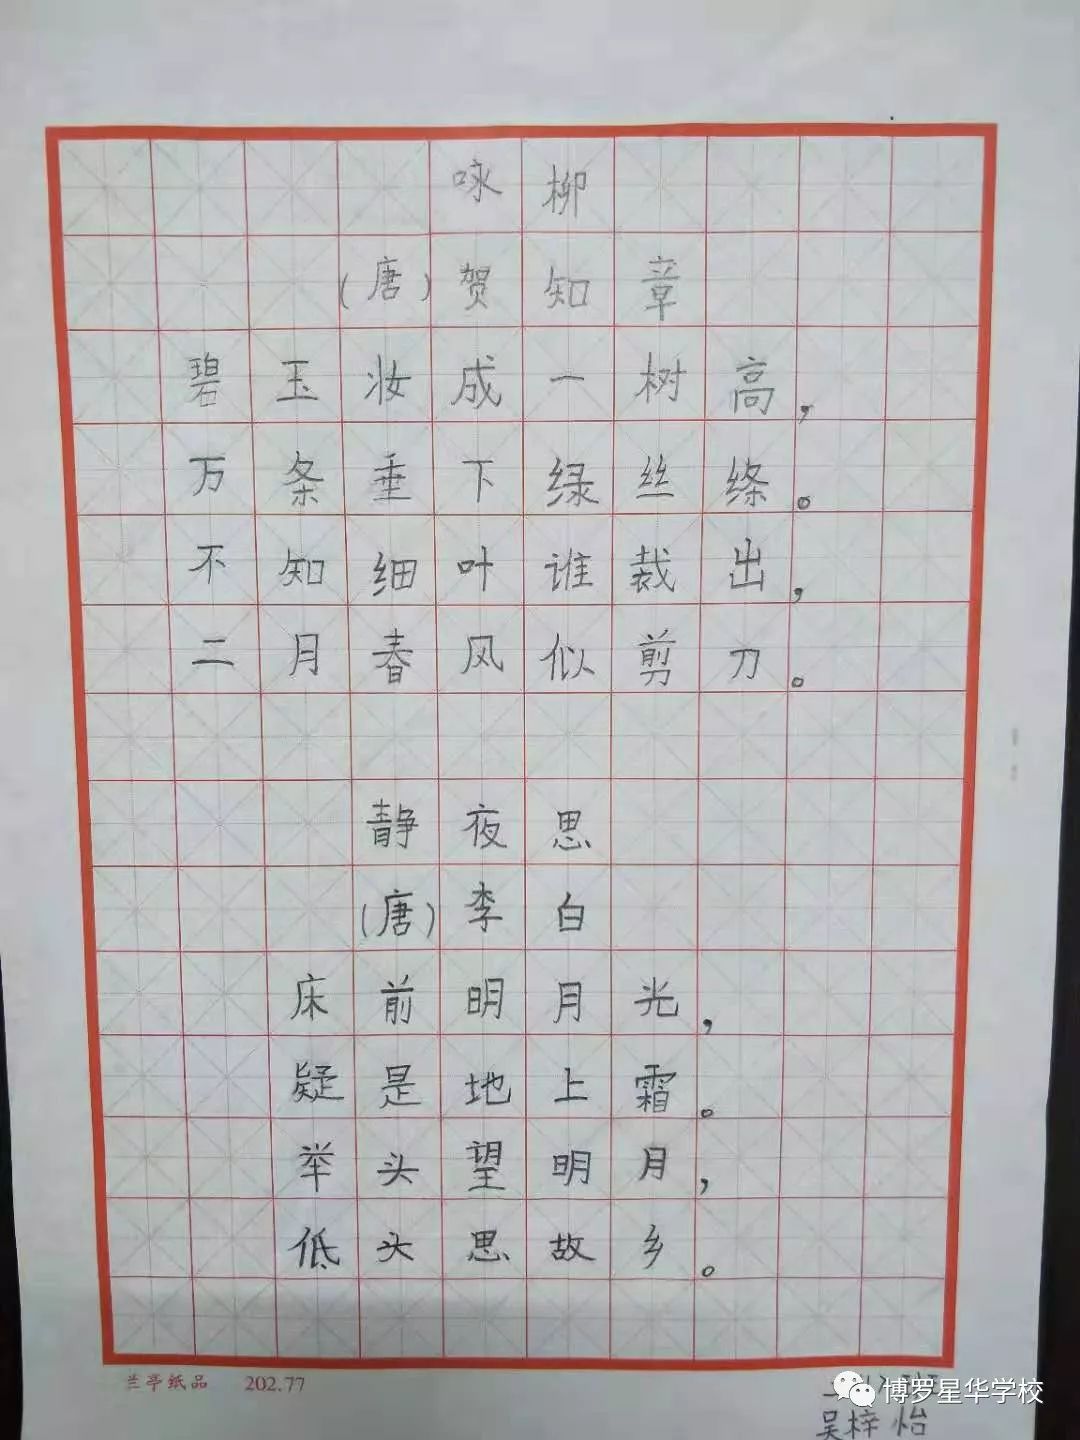 咏柳
(唐)贺知章
碧玉妆成一树高,
万条垂下绿丝绦。
不知细叶谁裁出,
二月春风似剪刀。
静夜思
(唐)李白
床前明月光,
疑是地上霜。
举头望明月,
低头思故乡。
兰亭纸品 202.77
班
博罗星华学校
吴梓怡